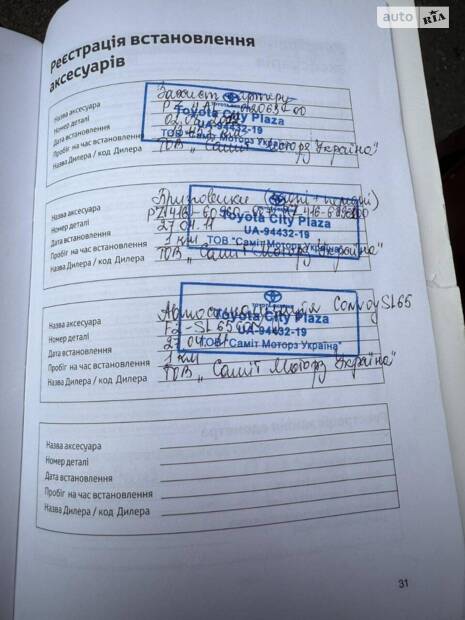 auto RIA
Реєстрація встановлення
аксесуарів
Назва аксесуара Захист картеру
Номер деталі
Дата встановлення
Пробіг на час встановлення
Назва Дилера / код Дилера ТОВ „Саміт Моторз Україна"
Toyota City Plaza
UA-94432-19
ТОВ "Саміт Моторз Україна"
Назва аксесуара Бризковики
Номер деталі PZ416-
Дата встановлення 27.04.11
Пробіг на час встановлення 1 км
Назва Дилера / код Дилера ТОВ „Саміт Моторз Україна"
Toyota City Plaza
UA-94432-19
ТОВ "Саміт Моторз Україна"
Назва аксесуара Convoy SL65
Номер деталі
Дата встановлення 27.04.11
Пробіг на час встановлення 1 км
Назва Дилера / код Дилера ТОВ „Саміт Моторз Україна"
Toyota City Plaza
UA-94432-19
ТОВ "Саміт Моторз Україна"
Назва аксесуара
Номер деталі
Дата встановлення
Пробіг на час встановлення
Назва Дилера / код Дилера
31